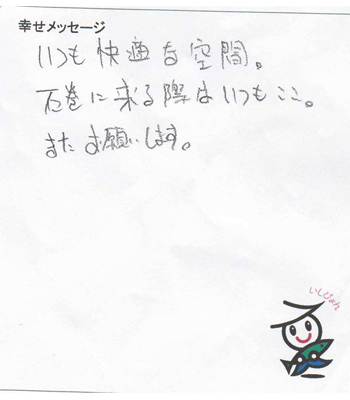 幸せメッセージ
いつも快適な空間。
石巻に来る際はいつもここ。
またお願いします。
いしぴょん